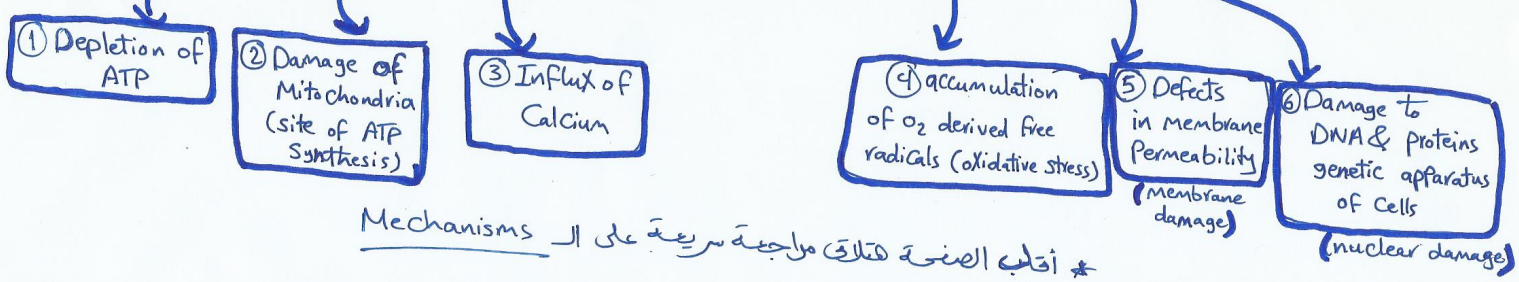 ① Depletion of
ATP
② Damage of
Mitochondria
(site of ATP
Synthesis)
③ Influx of
Calcium
④ accumulation
of O₂ derived free
radicals (oxidative stress)
⑤ Defects
in membrane
Permeability
(membrane
damage)
⑥ Damage to
DNA & proteins
genetic apparatus
of cells
(nuclear damage)
* أقلب الصفحة هتلاقى مراجعة سريعة على الـ Mechanisms